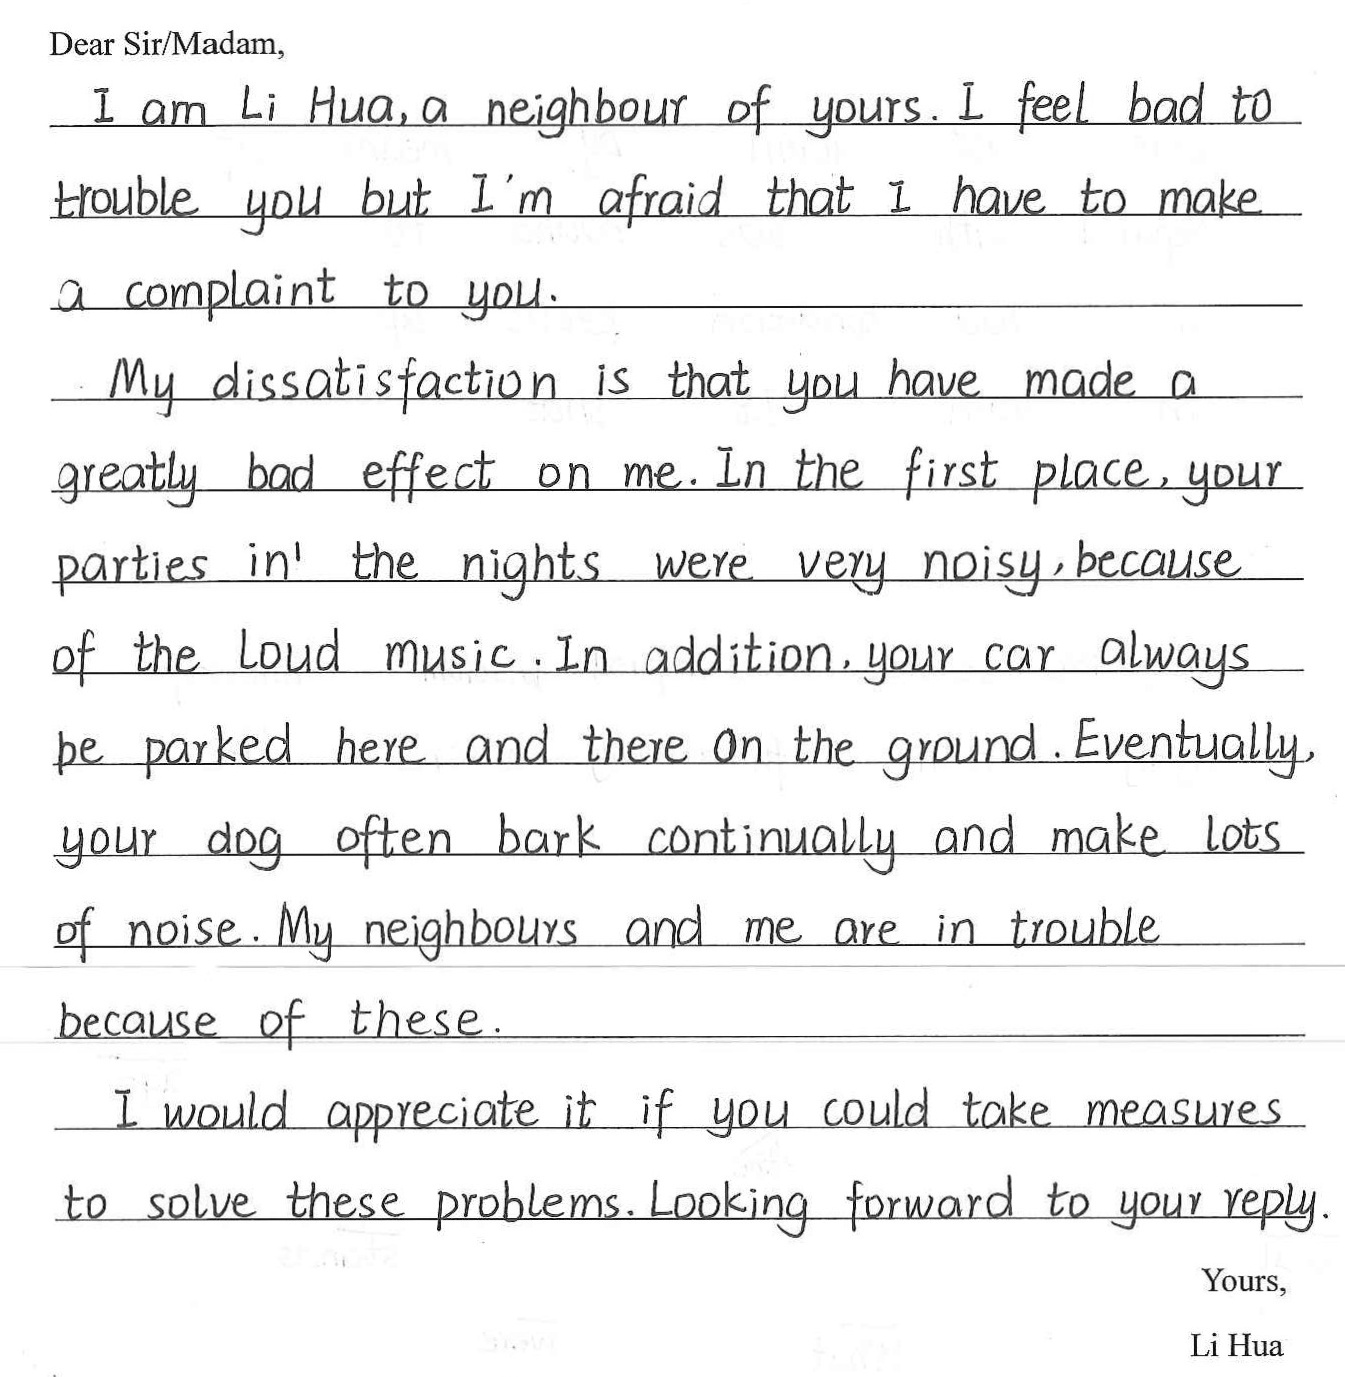 Dear Sir/Madam,
I am Li Hua, a neighbour of yours. I feel bad to
trouble you but I'm afraid that I have to make
a complaint to you.
My dissatisfaction is that you have made a
greatly bad effect on me. In the first place, your
parties in' the nights were very noisy, because
of the loud music. In addition, your car always
be parked here and there on the ground. Eventually,
your dog often bark continually and make lots
of noise. My neighbours and me are in trouble
because of these.
I would appreciate it if you could take measures
to solve these problems. Looking forward to your reply.
Yours,
Li Hua